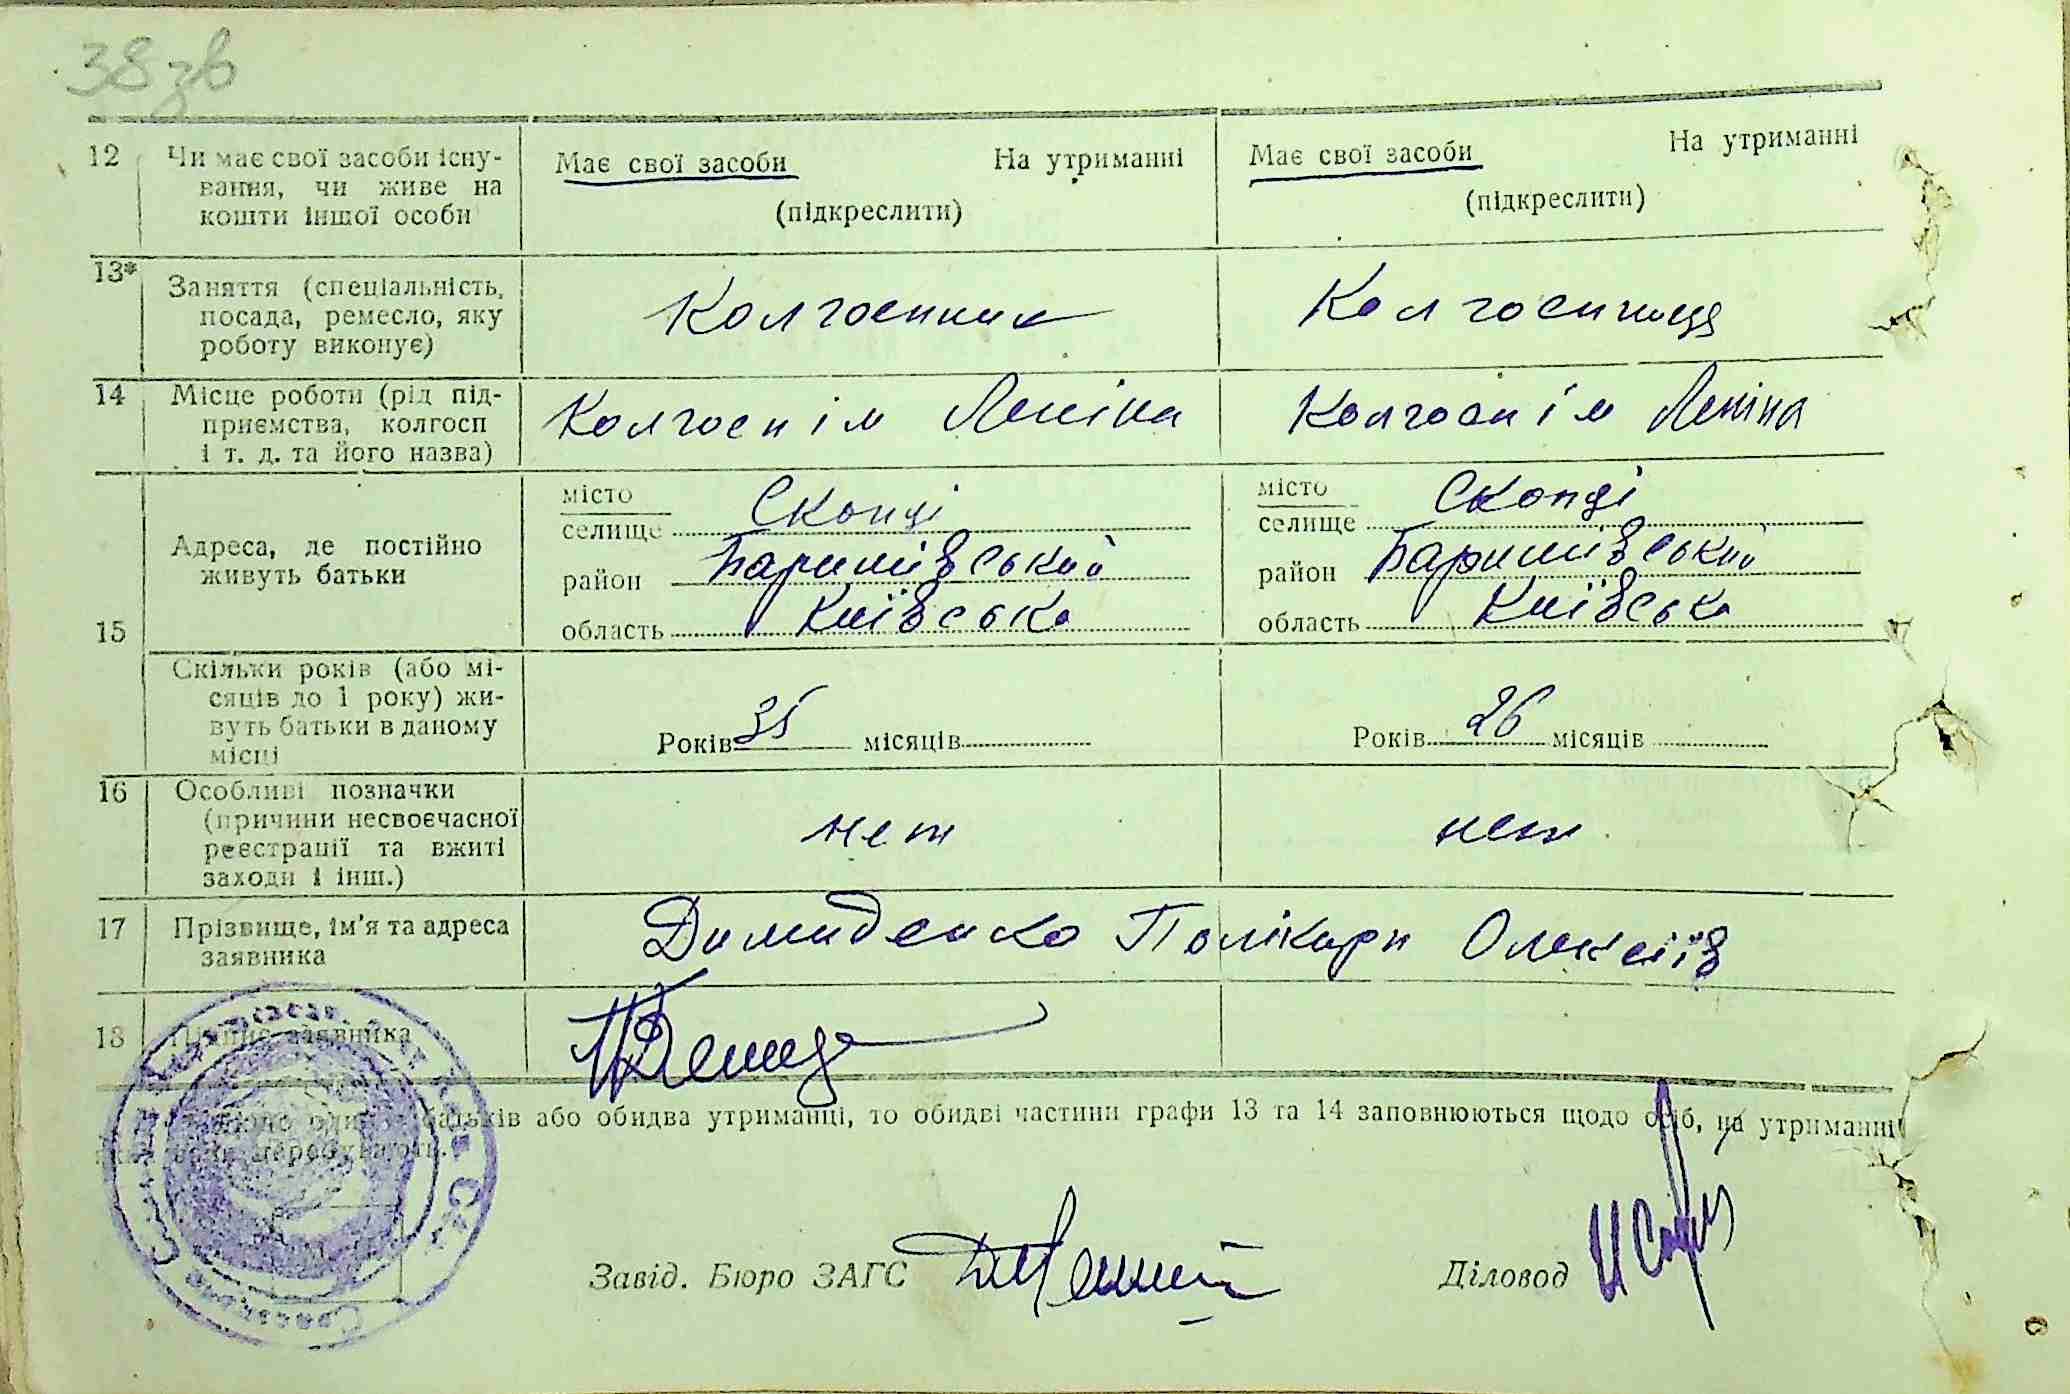 38 зв
12 Чи має свої засоби існу- Має свої засоби На утриманні Має свої засоби На утриманні
вання, чи живе на
кошти іншої особи (підкреслити) (підкреслити)
13* Заняття (спеціальність, Колгоспник Колгоспниця
посада, ремесло, яку
роботу виконує)
14 Місце роботи (рід під- Колгосп ім Леніна Колгосп ім Леніна
приємства, колгосп
і т. д. та його назва)
15 Адреса, де постійно місто Скопці місто Скопці
живуть батьки селище селище
район Баришівський район Баришівський
область Київська область Київська
Скільки років (або мі-
сяців до 1 року) жи-
вуть батьки в даному Років 35 місяців Років 26 місяців
місці
16 Особливі позначки
(причини несвоєчасної нет нет
реєстрації та вжиті
заходи і інш.)
17 Прізвище, ім'я та адреса Димиденко Полікарп Олексіїв
заявника
18 Підпис заявника
батьків або обидва утриманці, то обидві частини графи 13 та 14 заповнюються щодо осіб, на утриманні
Завід. Бюро ЗАГС Діловод